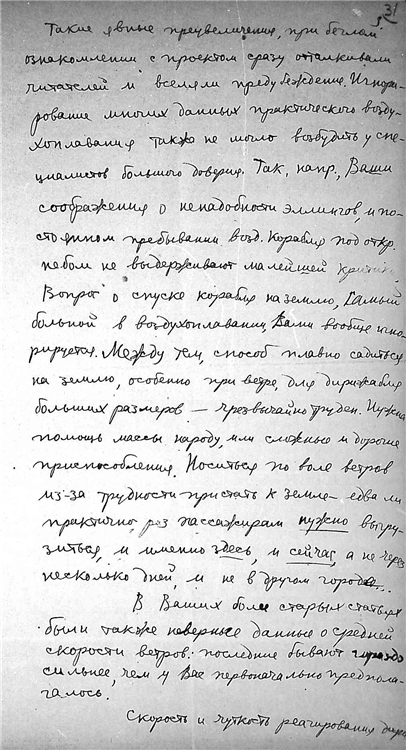 31
Такие явные преувеличения, при беглом
ознакомлении с проектом сразу отталкивали
читателей и вселяли предубеждение. Игнори-
рование многих данных практического возду-
хоплавания также не могло возбудить у спе-
циалистов большого доверия. Так, напр., Ваши
соображения о ненадобности эллингов, и по-
стоянном пребывании возд. корабля под откр.
небом не выдерживают малейшей критики.
Вопрос о спуске корабля на землю, самый
больной в воздухоплавании, Вами вообще игно-
рируется. Между тем, способ плавно садиться
на землю, особенно при ветре, для дирижабля
больших размеров — чрезвычайно труден. Нужна
помощь массы народу, или сложные и дорогие
приспособления. Носиться по воле ветров
из-за трудности пристать к земле — едва ли
практично, раз пассажирам нужно выгру-
зиться, и именно здесь, и сейчас, а не через
несколько дней, и не в другом городе...
В Ваших более старых статьях
были также неверные данные о средней
скорости ветров: последние бывают гораздо
сильнее, чем у Вас первоначально предпола-
галось.
Скорость и чуткость реагирования